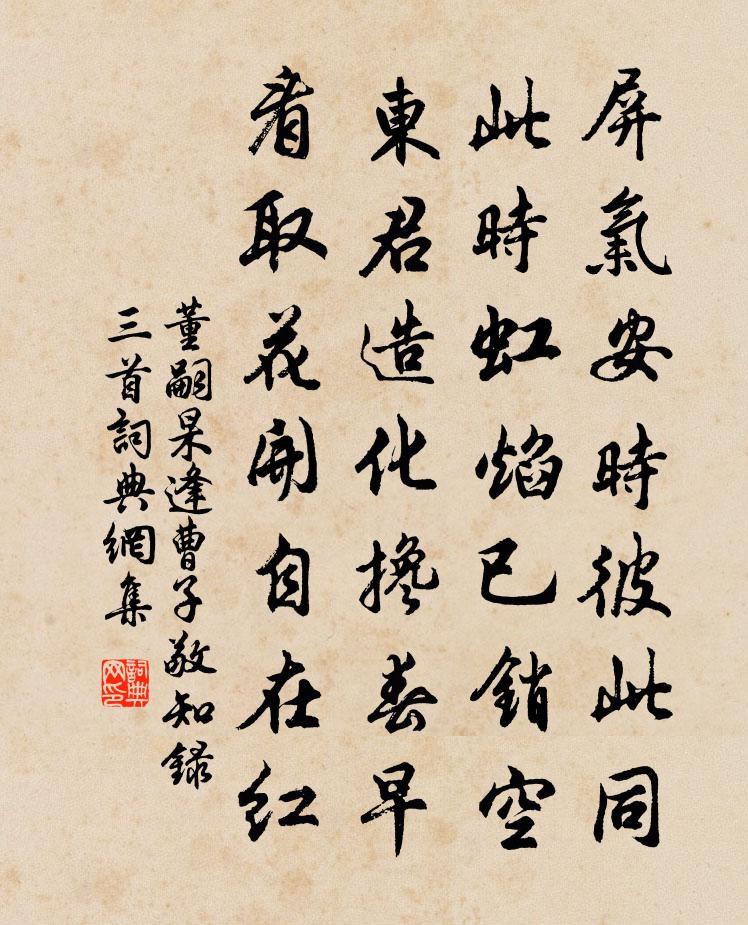 屏氣安時彼此同
此時虹焰已銷空
東君造化攙春早
看取花開自在紅
董嗣杲逢曹子敬知錄
三首詞典網集
詞典
网印